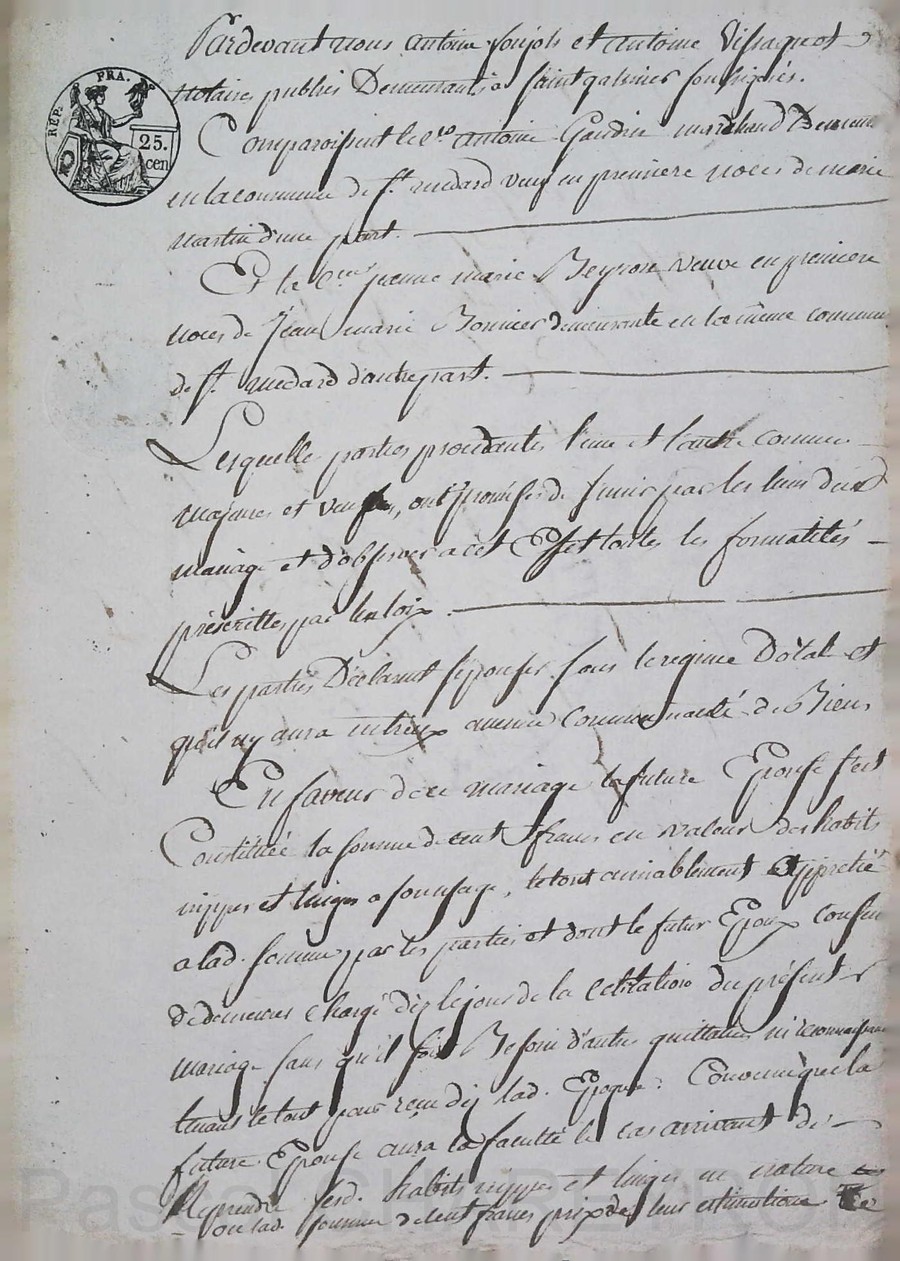 Pardevant nous antoine soujols et antoine
notaires publics Demeurants a saint galmier soussignés.
RÉP. FRA.
25.
cen
Comparoissent le c.en antoine marchand
en la commune de s.t medard veuf en premiere noces de marie
martin d'une part.
Et la C.enne jeanne marie veuve en premiere
noces de Jean marie demeurante en la même commune
de s.t medard d'autre part.
Lesquelles parties procédantes l'une et l'autre comme
majeures et ont promis de s'unir par les liens du
mariage et d'observer a cet Effet toutes les formalités
préscrittes par les loix
Les parties Déclarent s'épouser sous le regime Dotal et
qu'il n'y aura entreux aucune Communauté de Biens
En faveur de ce mariage la future Epouse s'est
Constituée la somme de cent francs en valeur des habits
nippes et linges a son usage, le tout amiablement apprétié
a lad. somme par les parties et dont le futur Epoux
de demeurer chargé dèz le jour de la celebration du présent
mariage sans qu'il soit Besoin d'autre quittance ni reconnaissance
tenant le tout pour reçu dèz lad. Epoque. Convenu que la
future Epouse aura la faculté le cas arrivant de
Reprendre sesd. habits nippes et linges en nature
ou lad. somme de cent francs prix de leur estimation